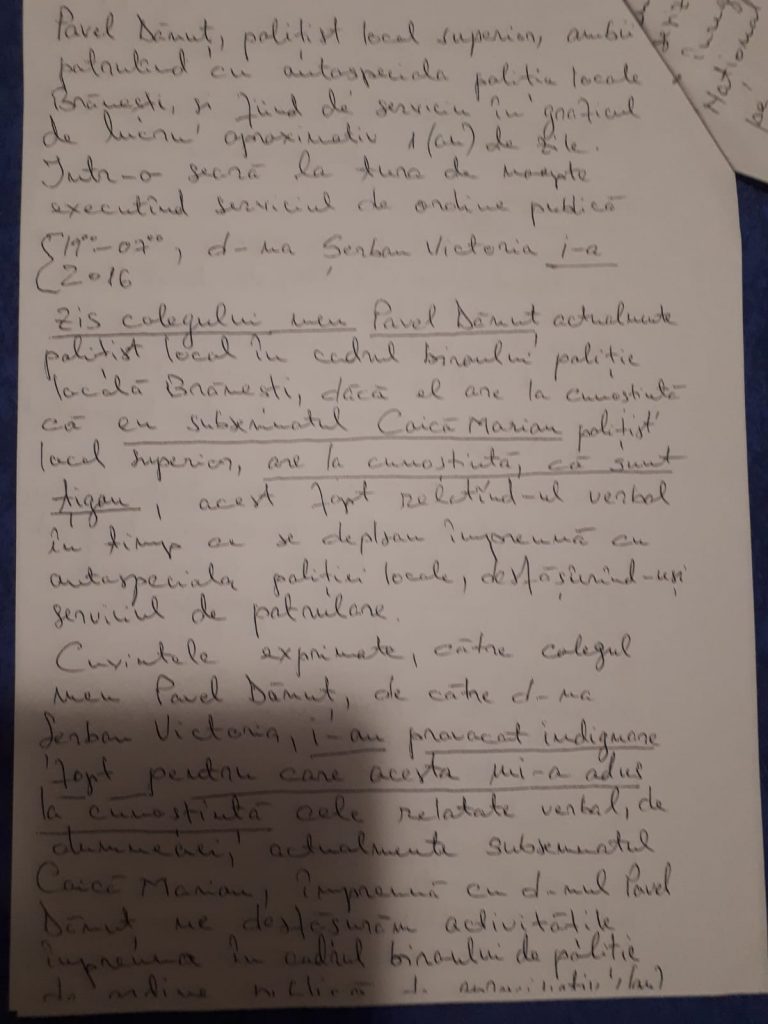 Pavel Dănuț, polițist local superior, ambii
patrulând cu autospeciala poliție locale
Brănești, și fiind de serviciu în graficul
de lucru aproximativ 1 (an) de zile.
Într-o seară la tura de noapte
executînd serviciul de ordine publică
19⁰⁰-07⁰⁰, d-na Șerban Victoria i-a
2016
zis colegului meu Pavel Dănuț actualmente
polițist local în cadrul biroului poliție
locală Brănești, dăcă el are la cunoștiuță
că eu subsemnatul Caică Marian polițist
local superior, are la cunoștiuță, că sunt
țigan, acest fapt relatînd-ul verbal
în timp ce se deplsau împreună cu
autospeciala poliției locale, desfășurînd-uși
serviciul de patrulare.
Cuvintele exprimate, către colegul
meu Pavel Dănuț, de către d-na
Șerban Victoria, i-au provocat indignare
fapt pentru care acesta mi-a adus
la cunoștiuță cele relatate verbal, de
dumneaei, actualmente subsemnatul
Caică Marian, împreună cu d-nul Pavel
Dănuț ne desfășurăm activitățile
împreuna în cadrul biroului de poliție
de ordine publică de aproximativ 1 (an)
înreg
Național
pe